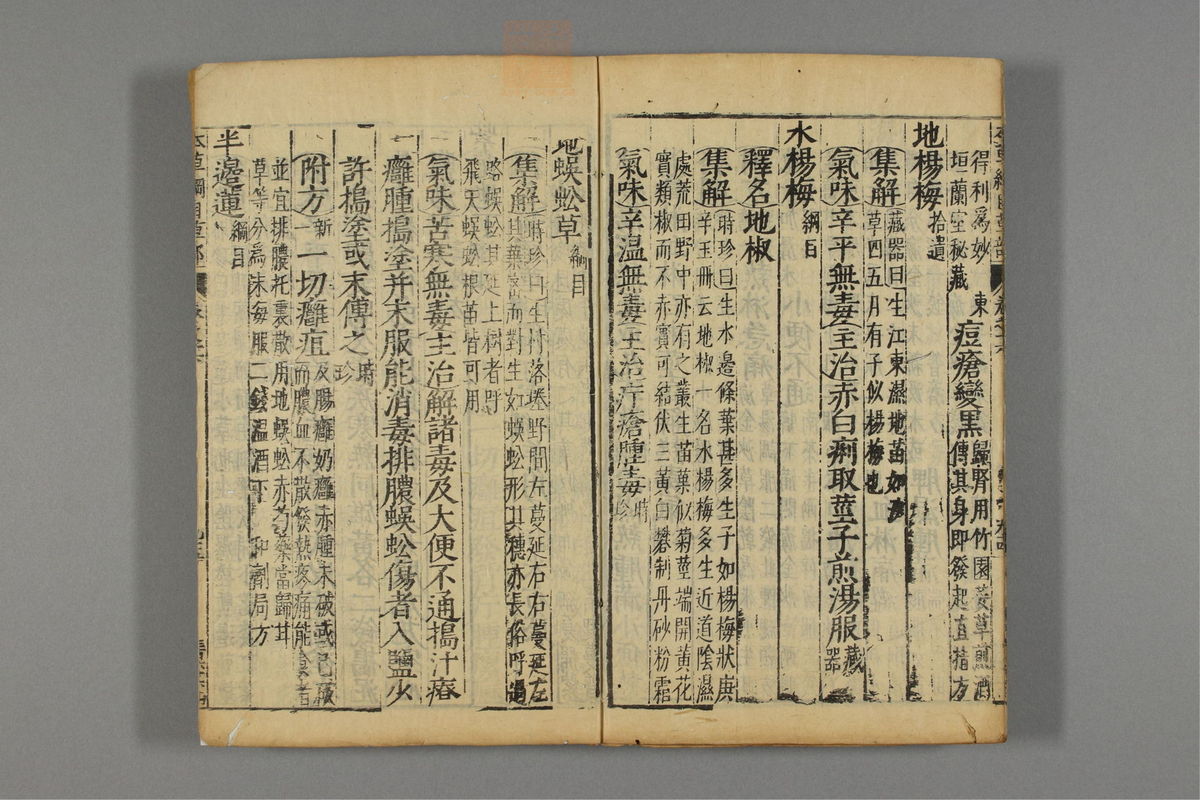 得利為妙
垣蘭室秘藏 東 痘瘡變黑 歸腎用竹園荽草煎酒
傳其身即發起直指方
地楊梅 拾遺
集解 藏器曰生江東濕地苗如
草四五月有子似楊梅也
氣味辛平無毒主治赤白痢取莖子煎湯服 藏器
水楊梅 綱目
釋名地椒
集解 時珍曰生水邊條葉甚多生子如楊梅狀庚
辛玉冊云地椒一名水楊梅多生近道陰濕
處荒田野中亦有之叢生苗葉似菊莖端開黃花
實類椒而不赤實可結伏三黃白礬制丹砂粉霜
氣味辛溫無毒主治疔瘡腫毒 時珍
地蜈蚣草 綱目
集解 時珍曰生村落塍野間左蔓延右右蔓延左
其葉密而對生如蜈蚣形其穗亦長俗呼過
路蜈蚣其延上樹者呼
飛天蜈蚣根苗皆可用
氣味苦寒無毒主治解諸毒及大便不通搗汁療
癰腫搗塗并末服能消毒排膿蜈蚣傷者入鹽少
許搗塗或末傅之 時珍
附方 新一 一切癰疽 及腸癰奶癰赤腫未破或已破
而膿血不散發熱疼痛能食者
並宜排膿托裏散用地蜈蚣赤芍藥當歸甘
草等分為末每服二錢溫酒下 和劑局方
半邊蓮 綱目